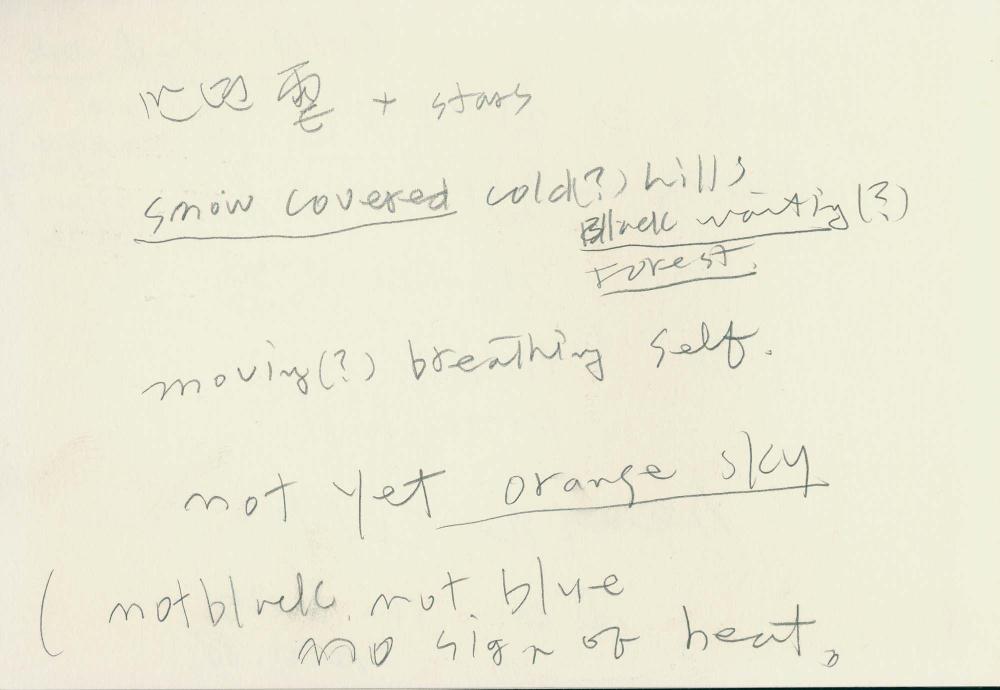 雲 + stars
snow covered cold(?) hills
Black waiting(?)
Forest.
moving(?) breathing self.
not yet orange sky
( not black. not. blue
no sign of heat.